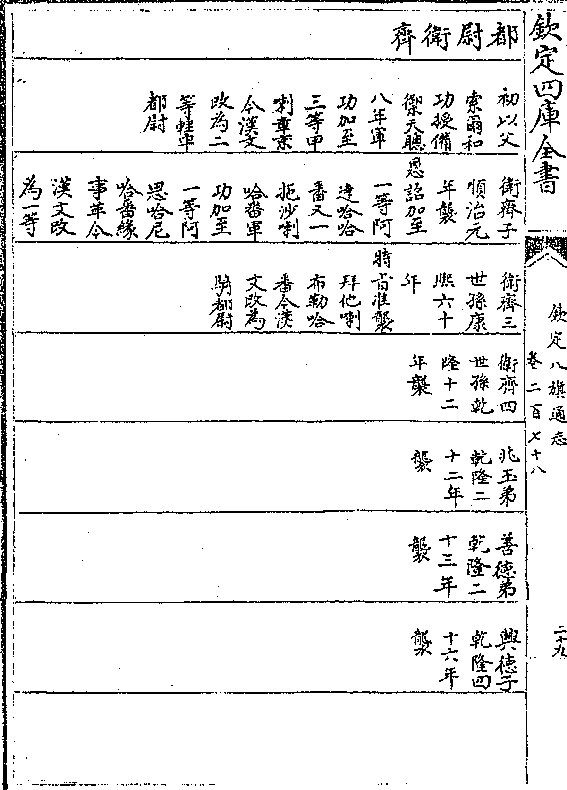 欽定四庫全書
欽定八旗通志
卷二百七十八
二十九
都尉衛齊
初以父
索爾和
功授備
禦天聰
八年軍
功加至
三等甲
喇章京
今漢文
改為二
等輕車
都尉
衛齊子
順治元
年襲
恩詔加至
一等阿
達哈哈
番又一
拖沙喇
哈番軍
功加至
一等阿
思哈尼
哈番緣
事革今
漢文改
為一等
衛齊三
世孫康
熙六十
年
特旨准襲
拜他喇
布勒哈
番今漢
文改為
騎都尉
衛齊四
世孫乾
隆十二
年襲
兆玉弟
乾隆二
十二年
襲
善德弟
乾隆二
十三年
襲
興德子
乾隆四
十六年
襲